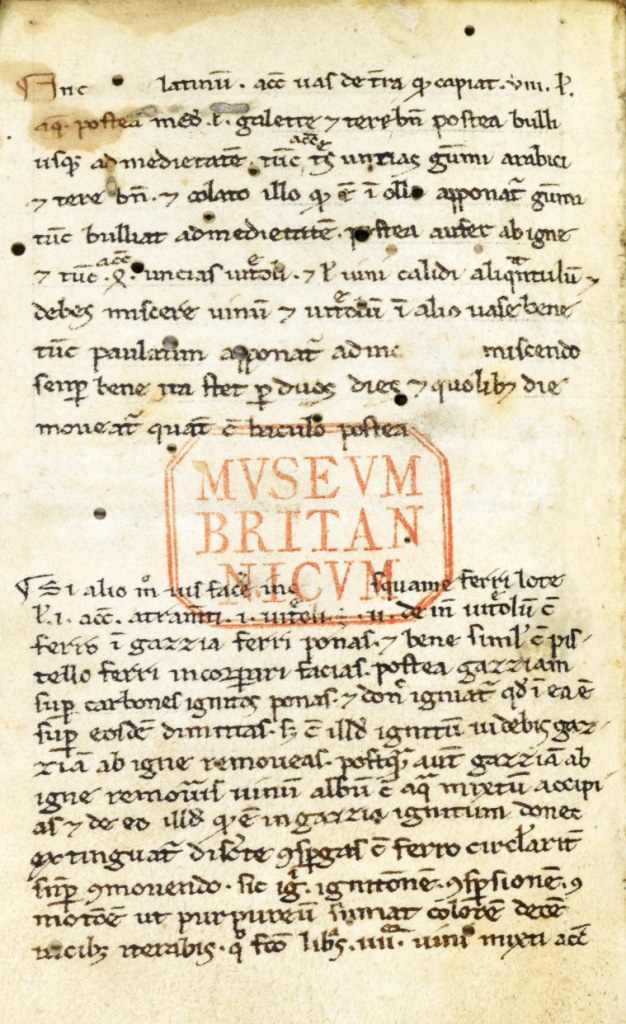 Inc latinū. acc̄ uas de t̄ra qͥ capiat. viii. l'.
aq̄. postea međ. l'. galette ⁊ tere bn̄ postea bulli
usqꝫ ad medietatē. tūc acc̄ untias gūmi arabici
⁊ tere bn̄. ⁊ colato illo qͥ ē ī olla apponat̄ gūmi
tūc bulliat ad medietatē. postea aufer ab igne
⁊ tūc acc̄ uncias uit̄oli. ⁊ l' uini calidi aliqᵃntulū
debes miscere uinū ⁊ uit̄olū ī alio uase bene
tūc paulatim apponat̄ ad inc miscendo
semp̱ bene ita stet p̱ duos dies ⁊ quolibꝫ die
moueat̄ quat̄ c̄ baculo postea
MVSEVM
BRITAN
NICVM
Si alio m̊ uis faćē inc squame ferri lote
l'. i. acc. atram̄ti. i. uit̄oli ÷ ii. de in uit̄olū c̄
ferro ī gazzia ferri ponas. ⁊ bene simil' c̄ pis-
tello ferri incorp̱ari facias. postea gazziam
sup̱ carbones ignitos ponas. ⁊ don̄ igniat̄ qđ ī ea ē
sup̱ eosdē dimittas. sꝫ c̄ illđ ignitū uidebis gaz-
ziā ab igne remoueas. postqᵃ aut̄ gazziā ab
igne remou̓is uinū albū c̄ aqᵃ mixtū accipi
as ⁊ de eo illđ qͥ ē in gazzia ignitum donec
extinguat̄ disc̓te ꝯsp̱gas c̄ ferro circl'arit̄
semp̱ ꝯmouendo. sic igͥ. ignitōnē. ꝯsp̱sionē. ꝯ
motōē ut purpureū sumat colorē decē
uicibꝫ iterabis. qͦ fc̄o libᵃs. iiii. uini mixti acc̄